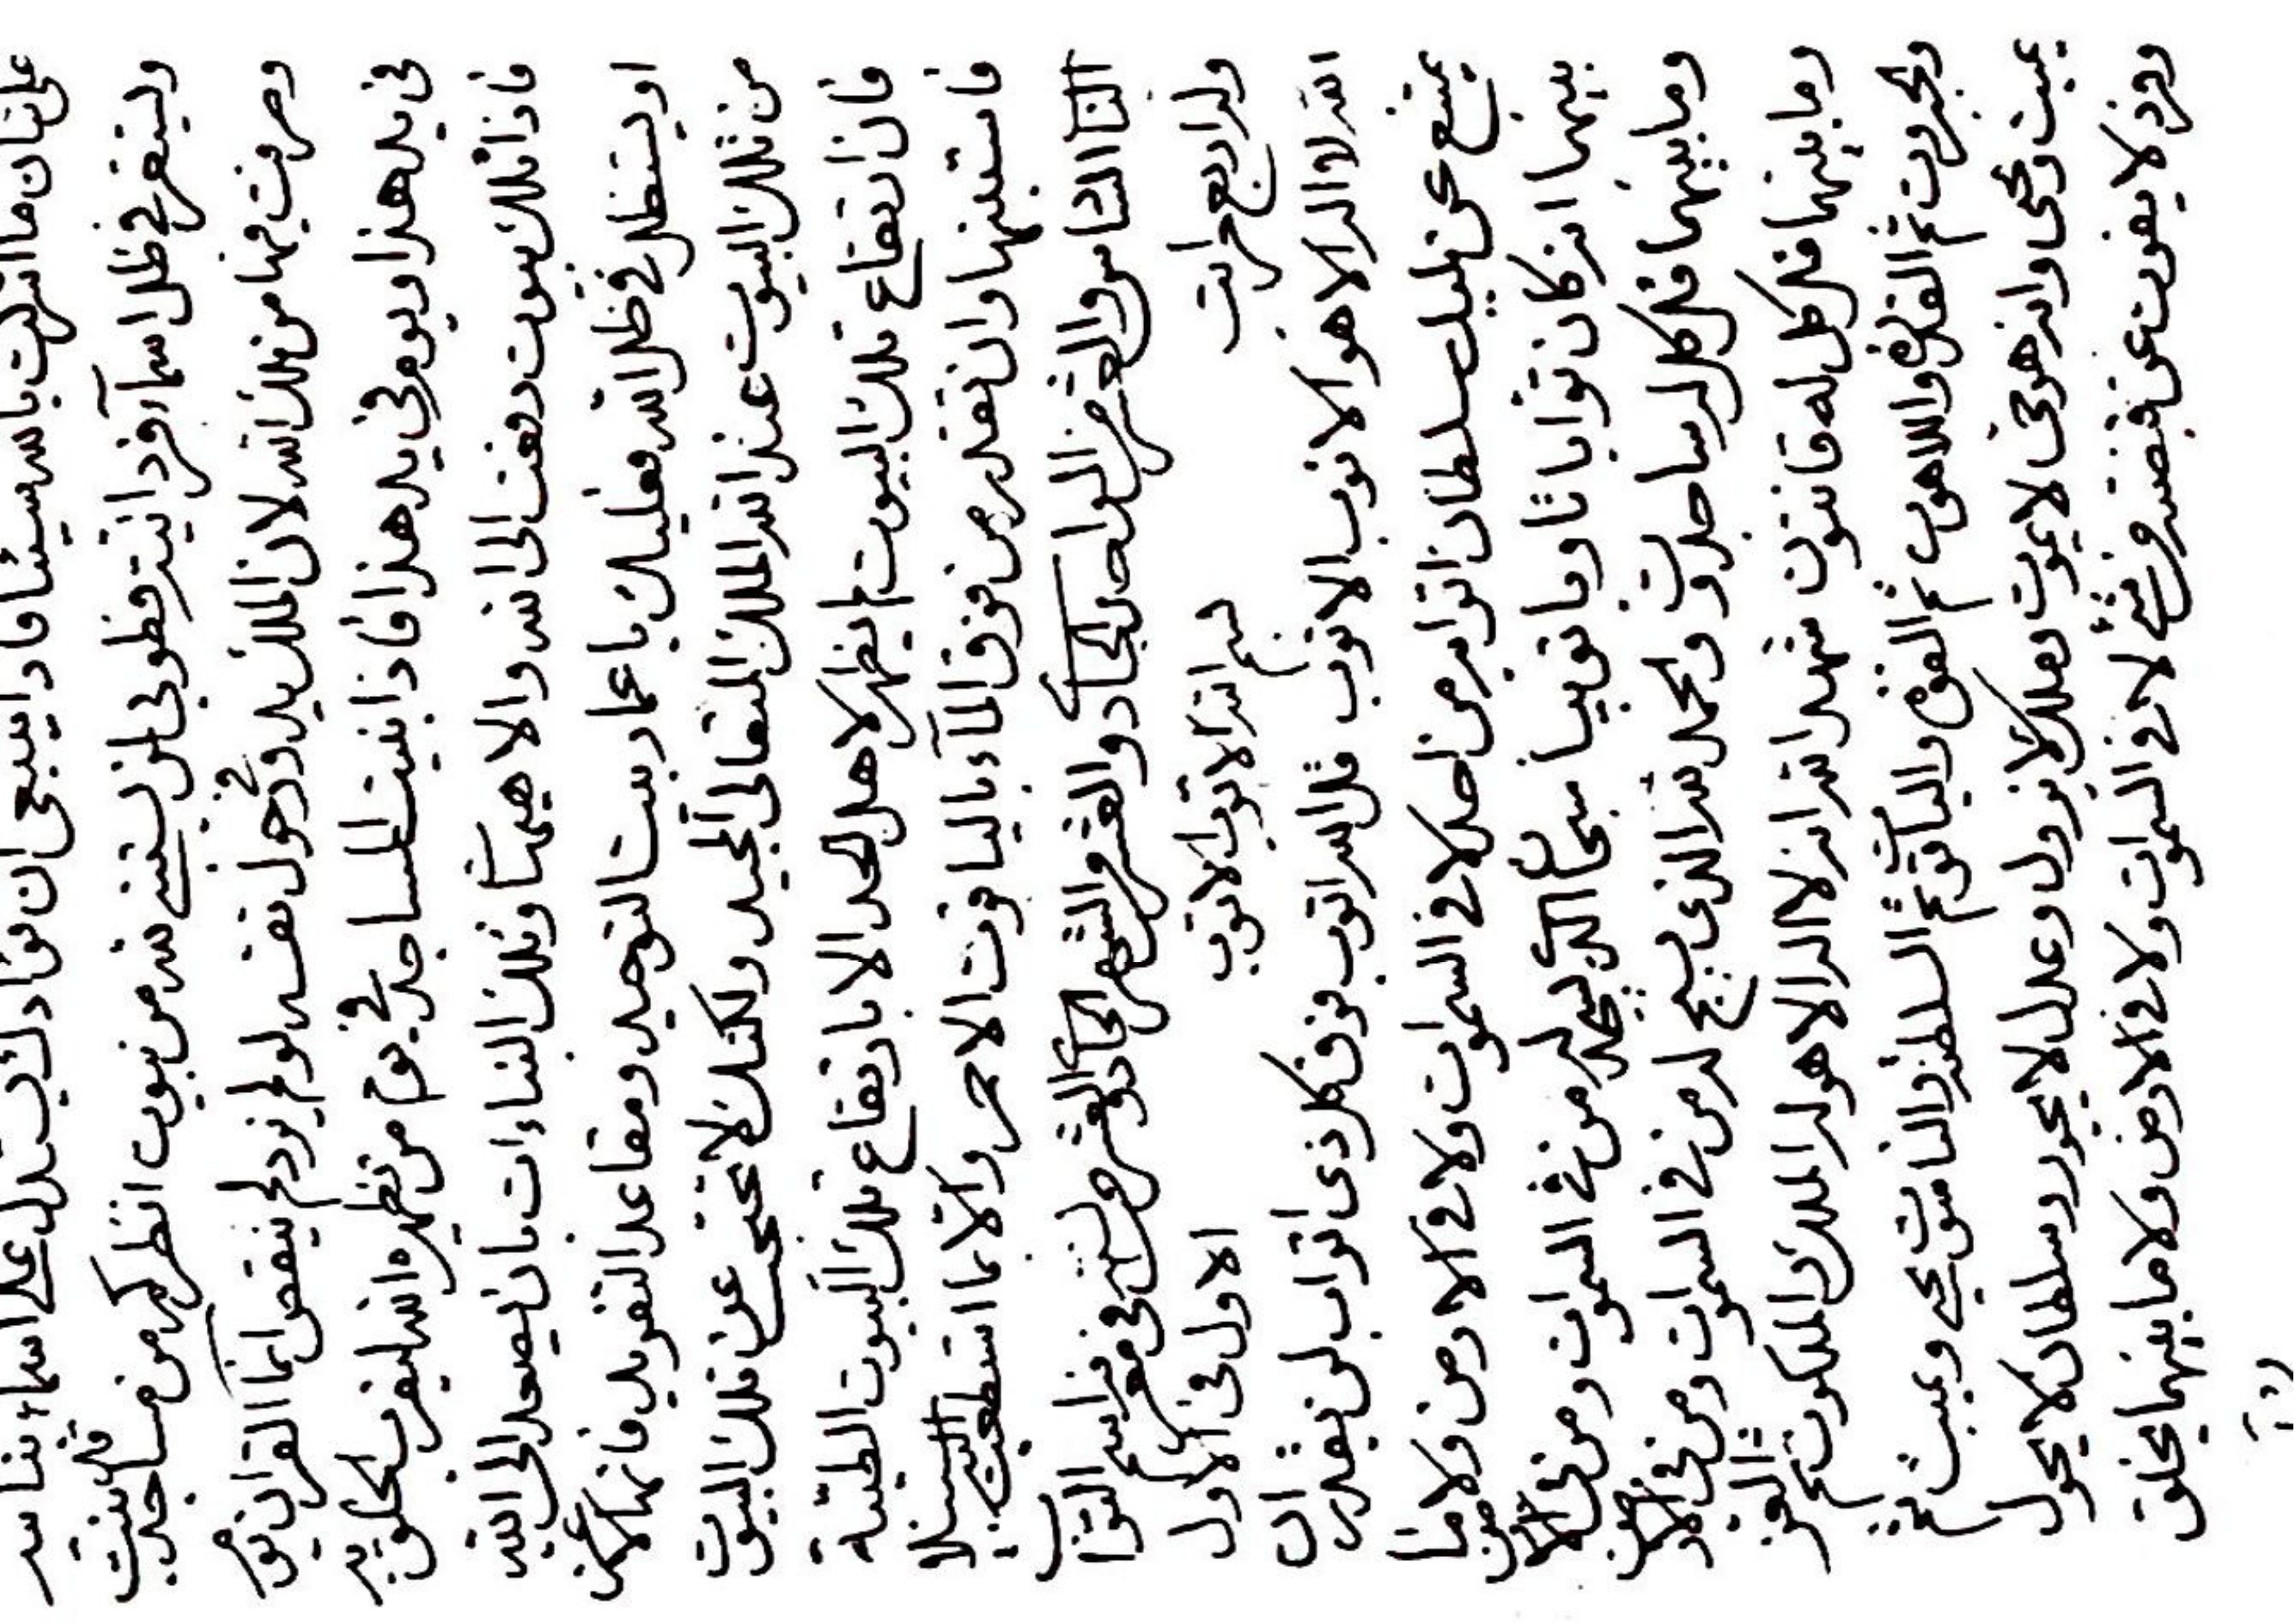 على شان ما انزلت باسم سيئا فاذا ينبغى ان فؤادك يستدل على اسماء بناسه
وليستقر فى ظل اسماء فردانيته فطوبى لمن يستبنى لله من بيوت انظر كم من مساجد قد بنيت
وصرفت فيها من تلك الله لان الملك بيده وحول نفسه لو لم يزد لم ينقص انما القران يو
فى يد هذا ويوم فى يد هذا فاذا بنيت المساجد فى يوم من يظهره الله ليقرب يخلق به
فاذا تلك بيوت رفعت الى الله والا هيهات وتلك البناءات بان يصعد الى الله
او يستظل فى ظل الله فعليك باعمار بيت التوحيد ومقاعد التفريد فانها لاعز
من تلك البيوت عند الله الملك المتعالى المجيد ولكنك لا تحتجب عن تلك البيوت
فان ارتفاع تلك البيوت لم يظهر لاهل الحد الا بارتفاع تلك البيوت الطيبة
فاستبنها وان تقدر من فوق الماء بالياقوت الاحمر والا بما استطعت اليه سبيلا
الثا الثامن والعشر من الواحد الحاد والعشر من الشهر الحاد والعشر من السنة فى معرفة اسم التواب
وله اربع مراتب الاول فى الاول
بسم الله الاتوب الاتوب
الله لا اله الا هو الاتوب الاتوب قل الله اتوب فوق كل ذى اتواب لن يقدر ان
يمتنع عن مليك سلطان اتوابه من احد لا فى السموات ولا فى الارض ولا ما
بينهما انه كان توابا تاوبا تويبا سبحان الذى يسجد له من فى السموات ومن فى الارض
وما بينهما قل كل له ساجدون والحمد لله الذى يسبح له من فى السموات ومن فى الارض
وما بينهما قل كل له قانتون شهد الله انه لا اله الا هو له الملك والملكوت ثم العز
والجبروت ثم القدرة واللاهوت ثم القوة والياقوت ثم السلطنة والناسوت يحيى ويميت ثم
يميت ويحيى وانه هو حى لا يموت وملك لا يزول وعدل لا يجور وسلطان لا يحول
وفرد لا يفوت عن قبضته من شئ لا فى السموات ولا فى الارض ولا ما بينهما يخلق